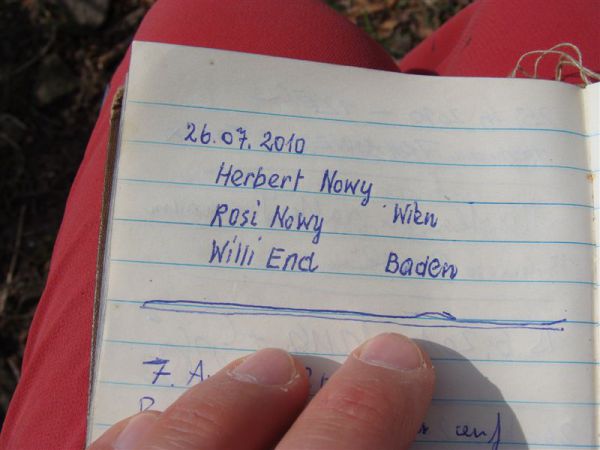 26.07.2010
Herbert Nowy
Rosi Nowy Wien
Willi End Baden
7.
auf